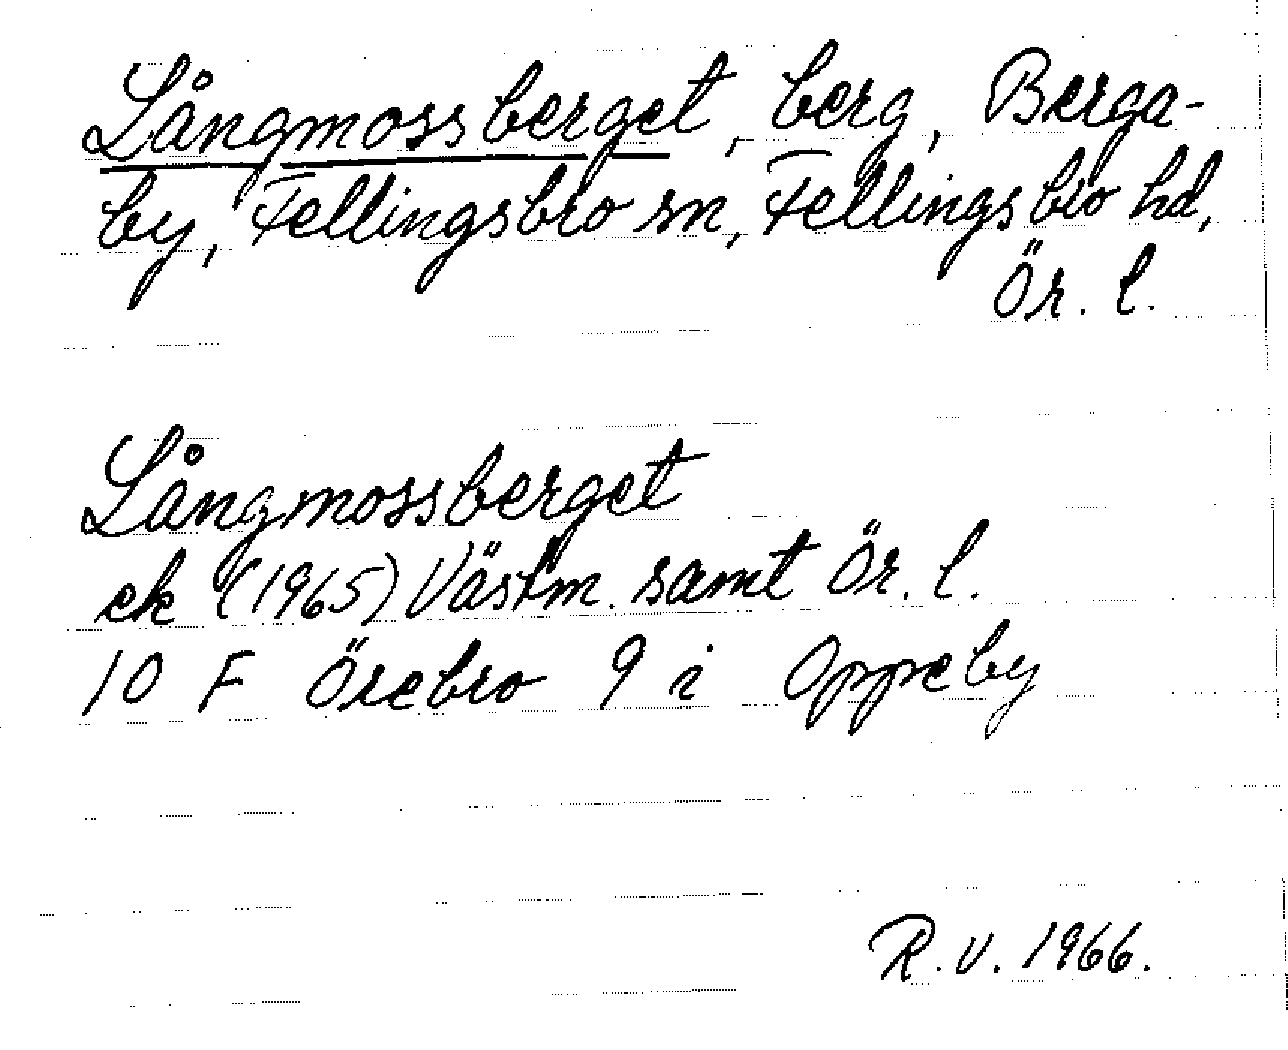 Långmossberget, berg, Berga-
by, Fellingsbro sn, Fellingsbro hd,
Ör. l.
Långmossberget
ek (1965) Västm. samt Ör. l.
10 F Örebro 9 i Oppeby
R.V. 1966.